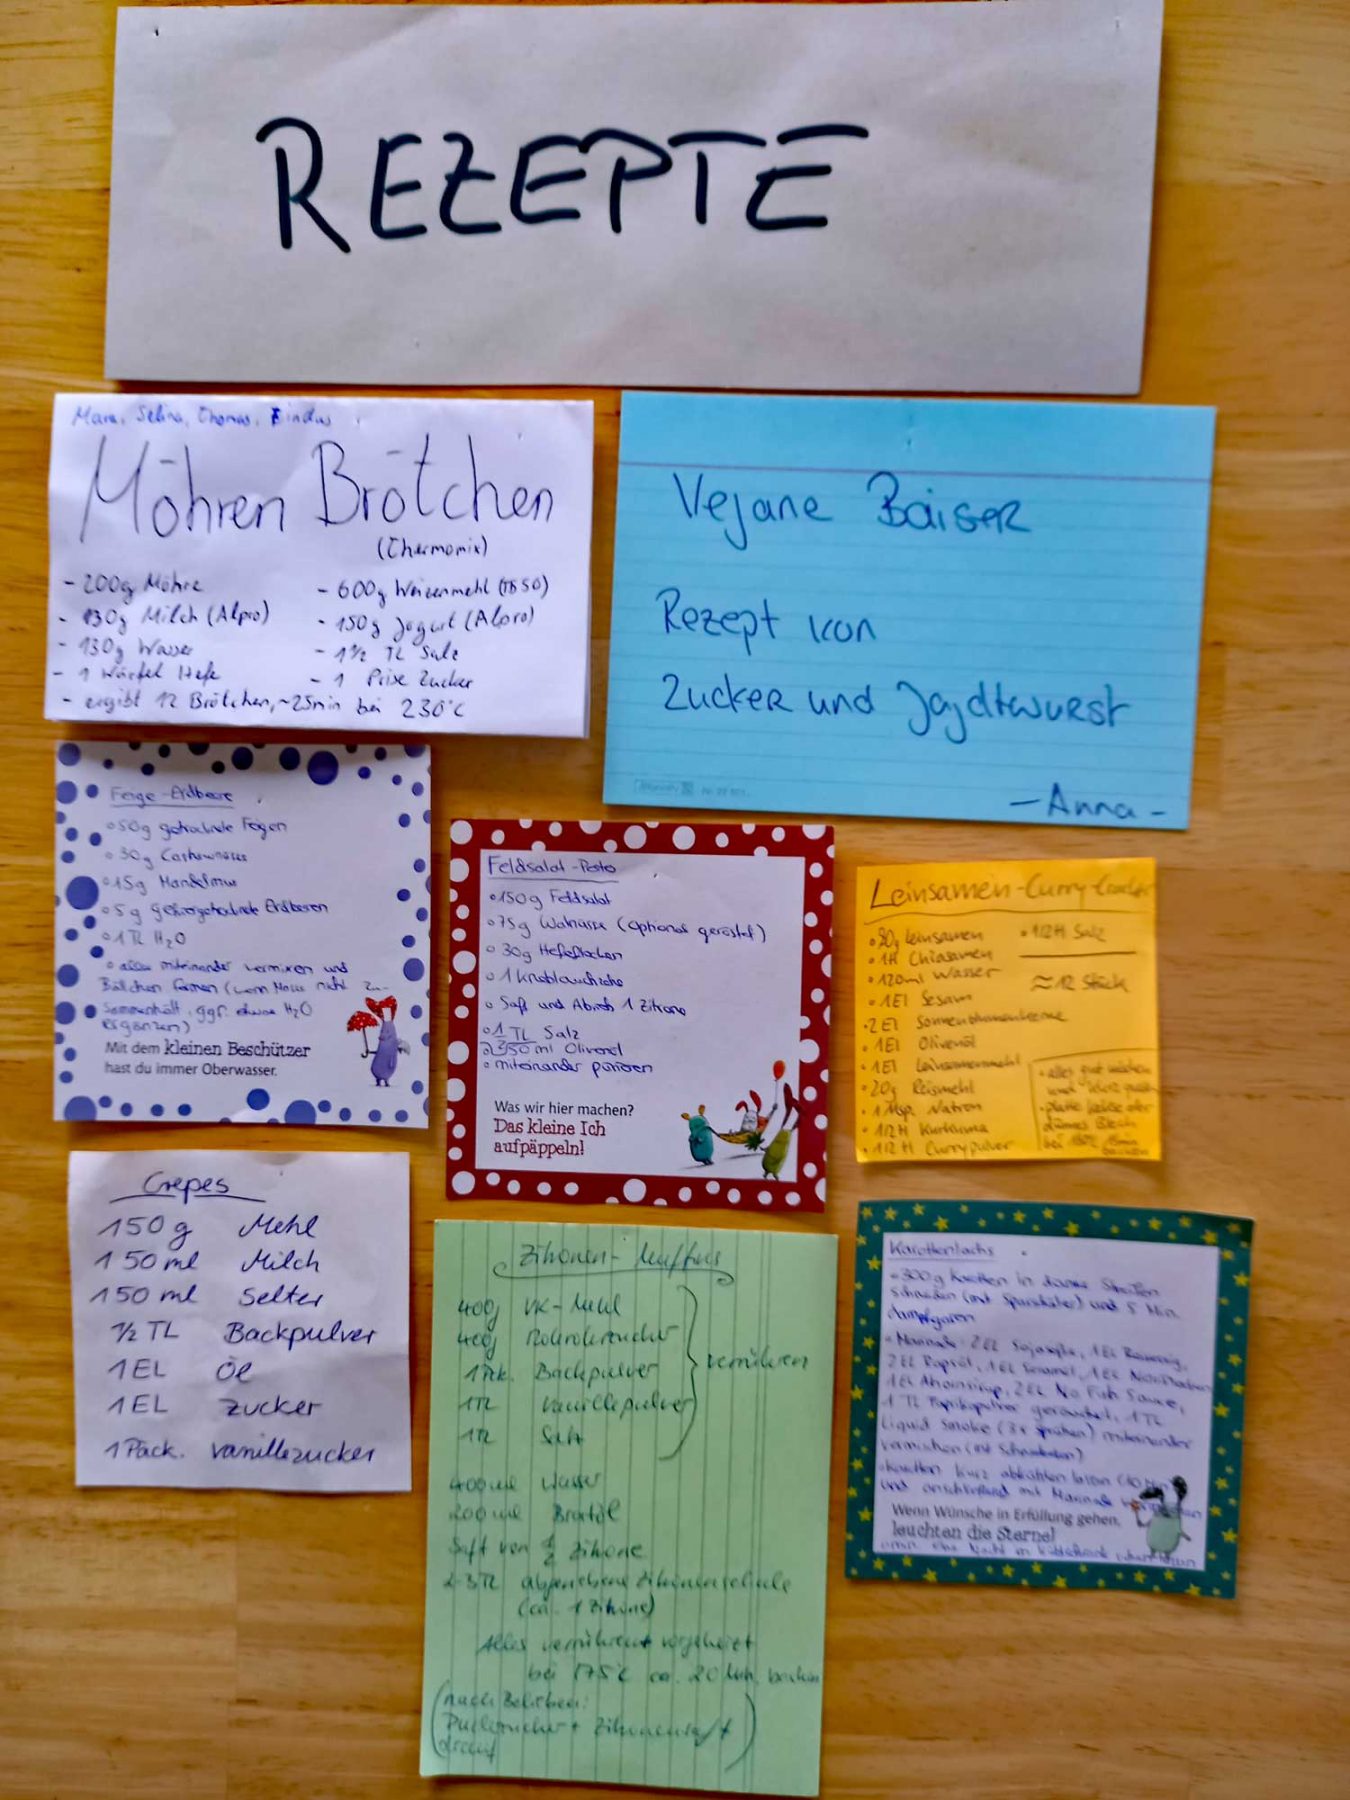 REZEPTE
Mara, Selina, Thomas,
Möhren Brötchen
(Thermomix)
- 200g Möhre
- 130g Milch (Alpro)
- 130g Wasser
- 1 Würfel Hefe
- 600g Weizenmehl (550)
- 150g Jogurt (Alpro)
- 1½ TL Salz
- 1 Prise Zucker
- ergibt 12 Brötchen, ~25min bei 230°C
Vegane Baiser
Rezept von
Zucker und Jagdtwurst
- Anna -
Feige-Erdbeere
50g getrocknete Feigen
30g Cashewnüsse
15g Mandelmus
5g gefriergetrocknete Erdbeeren
1 TL H2O
alles miteinander vermixen und
Bällchen formen (wenn Masse nicht zu-
sammenhält, ggf. etwas H2O
ergänzen)
Mit dem kleinen Beschützer
hast du immer Oberwasser.
Feldsalat-Pesto
150g Feldsalat
75g Walnüsse (optional geröstet)
30g Hefeflocken
1 Knoblauchzehe
Saft und Abrieb 1 Zitrone
1 TL Salz
50 ml Olivenöl
miteinander pürieren
Was wir hier machen?
Das kleine Ich
aufpäppeln!
Leinsamen-Curry-Cracker
80g Leinsamen
1El Chiasamen
120ml Wasser
1El Sesam
2El Sonnenblumenkerne
1El Olivenöl
1El Leinsamenmehl
20g Reismehl
1 Msp. Natron
1/2Tl Kurkuma
1/2Tl Currypulver
1/2Tl Salz
≈12 Stück
alles gut mischen
und
dünnes Blech
bei 180°C 15min
backen
Crepes
150 g Mehl
150 ml Milch
150 ml Selter
½ TL Backpulver
1 EL Öl
1 EL Zucker
1 Pack. Vanillezucker
Zitronen-Muffins
400g VK-Mehl
400g Rohrohrzucker
1 Pk. Backpulver
1TL Vanillepulver
1TL Salz
verrühren
400ml Wasser
200ml Bratöl
Saft von ½ Zitrone
2-3TL abgeriebene Zitronenschale
(ca. 1 Zitrone)
Alles verrühren + vorgeheizt
bei 175°C ca. 20 Min. backen
(nach Belieben:
Puderzucker + Zitronensaft
drauf)
Karottenlachs
300g Karotten in dünne Streifen
schneiden (mit Sparschäler) und 5 Min.
dampfgaren
Marinade: 2 EL Sojasoße, 1 EL
2 EL Rapsöl, 1 EL 1 EL
1 EL Ahornsirup, 2 EL No Fish Sauce,
1 TL Paprikapulver geräuchert, 1 TL
Liquid Smoke (3x sprühen) miteinander
vermischen (mit Schneebesen)
Karotten kurz abkühlen lassen (10 Min)
und anschließend mit Marinade
Wenn Wünsche in Erfüllung gehen,
leuchten die Sterne!
min. eine Nacht im Kühlschrank